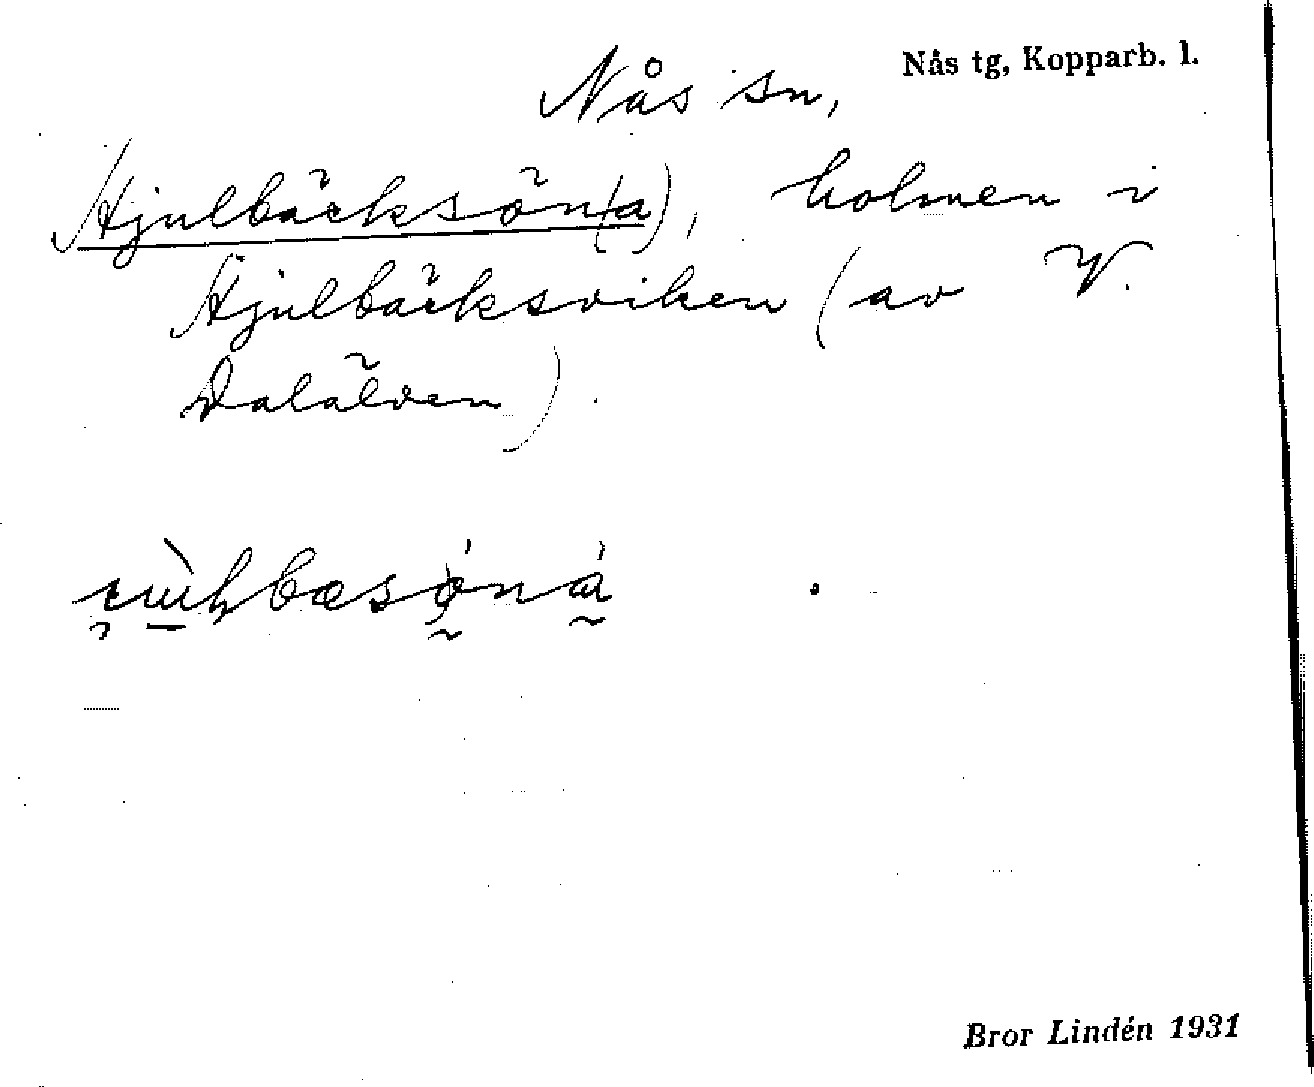 Nås tg, Kopparb. l.
Nås sn,
Hjulbäcksön(a), holmen i
Hjulbäcksviken (av V.
Dalälven).
Bror Lindén 1931